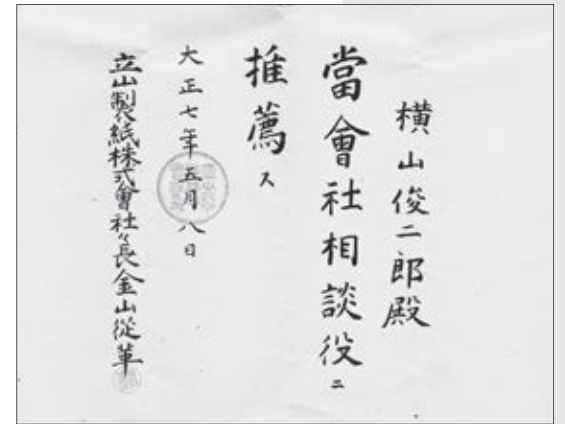 横山俊二郎殿
當會社相談役ニ
推薦ス
大正七年五月八日
立山製紙株式會社々長金山從革